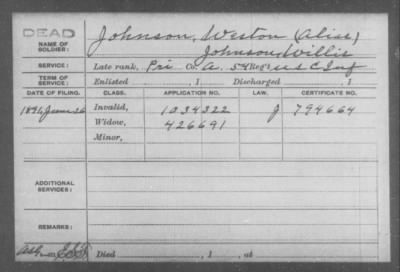 DEAD
Johnson, Weston (Alias)
NAME OF SOLDIER:
Johnson, Willis
SERVICE: Late rank, Pri Co. A, 54 Reg't U S C Inf
TERM OF SERVICE: Enlisted , 1 Discharged , 1
DATE OF FILING. CLASS. APPLICATION NO. LAW. CERTIFICATE NO.
1891, June 26 Invalid, 1034322 J 794664
Widow, 426691
Minor,
ADDITIONAL SERVICES:
REMARKS:
Died , 1 , at